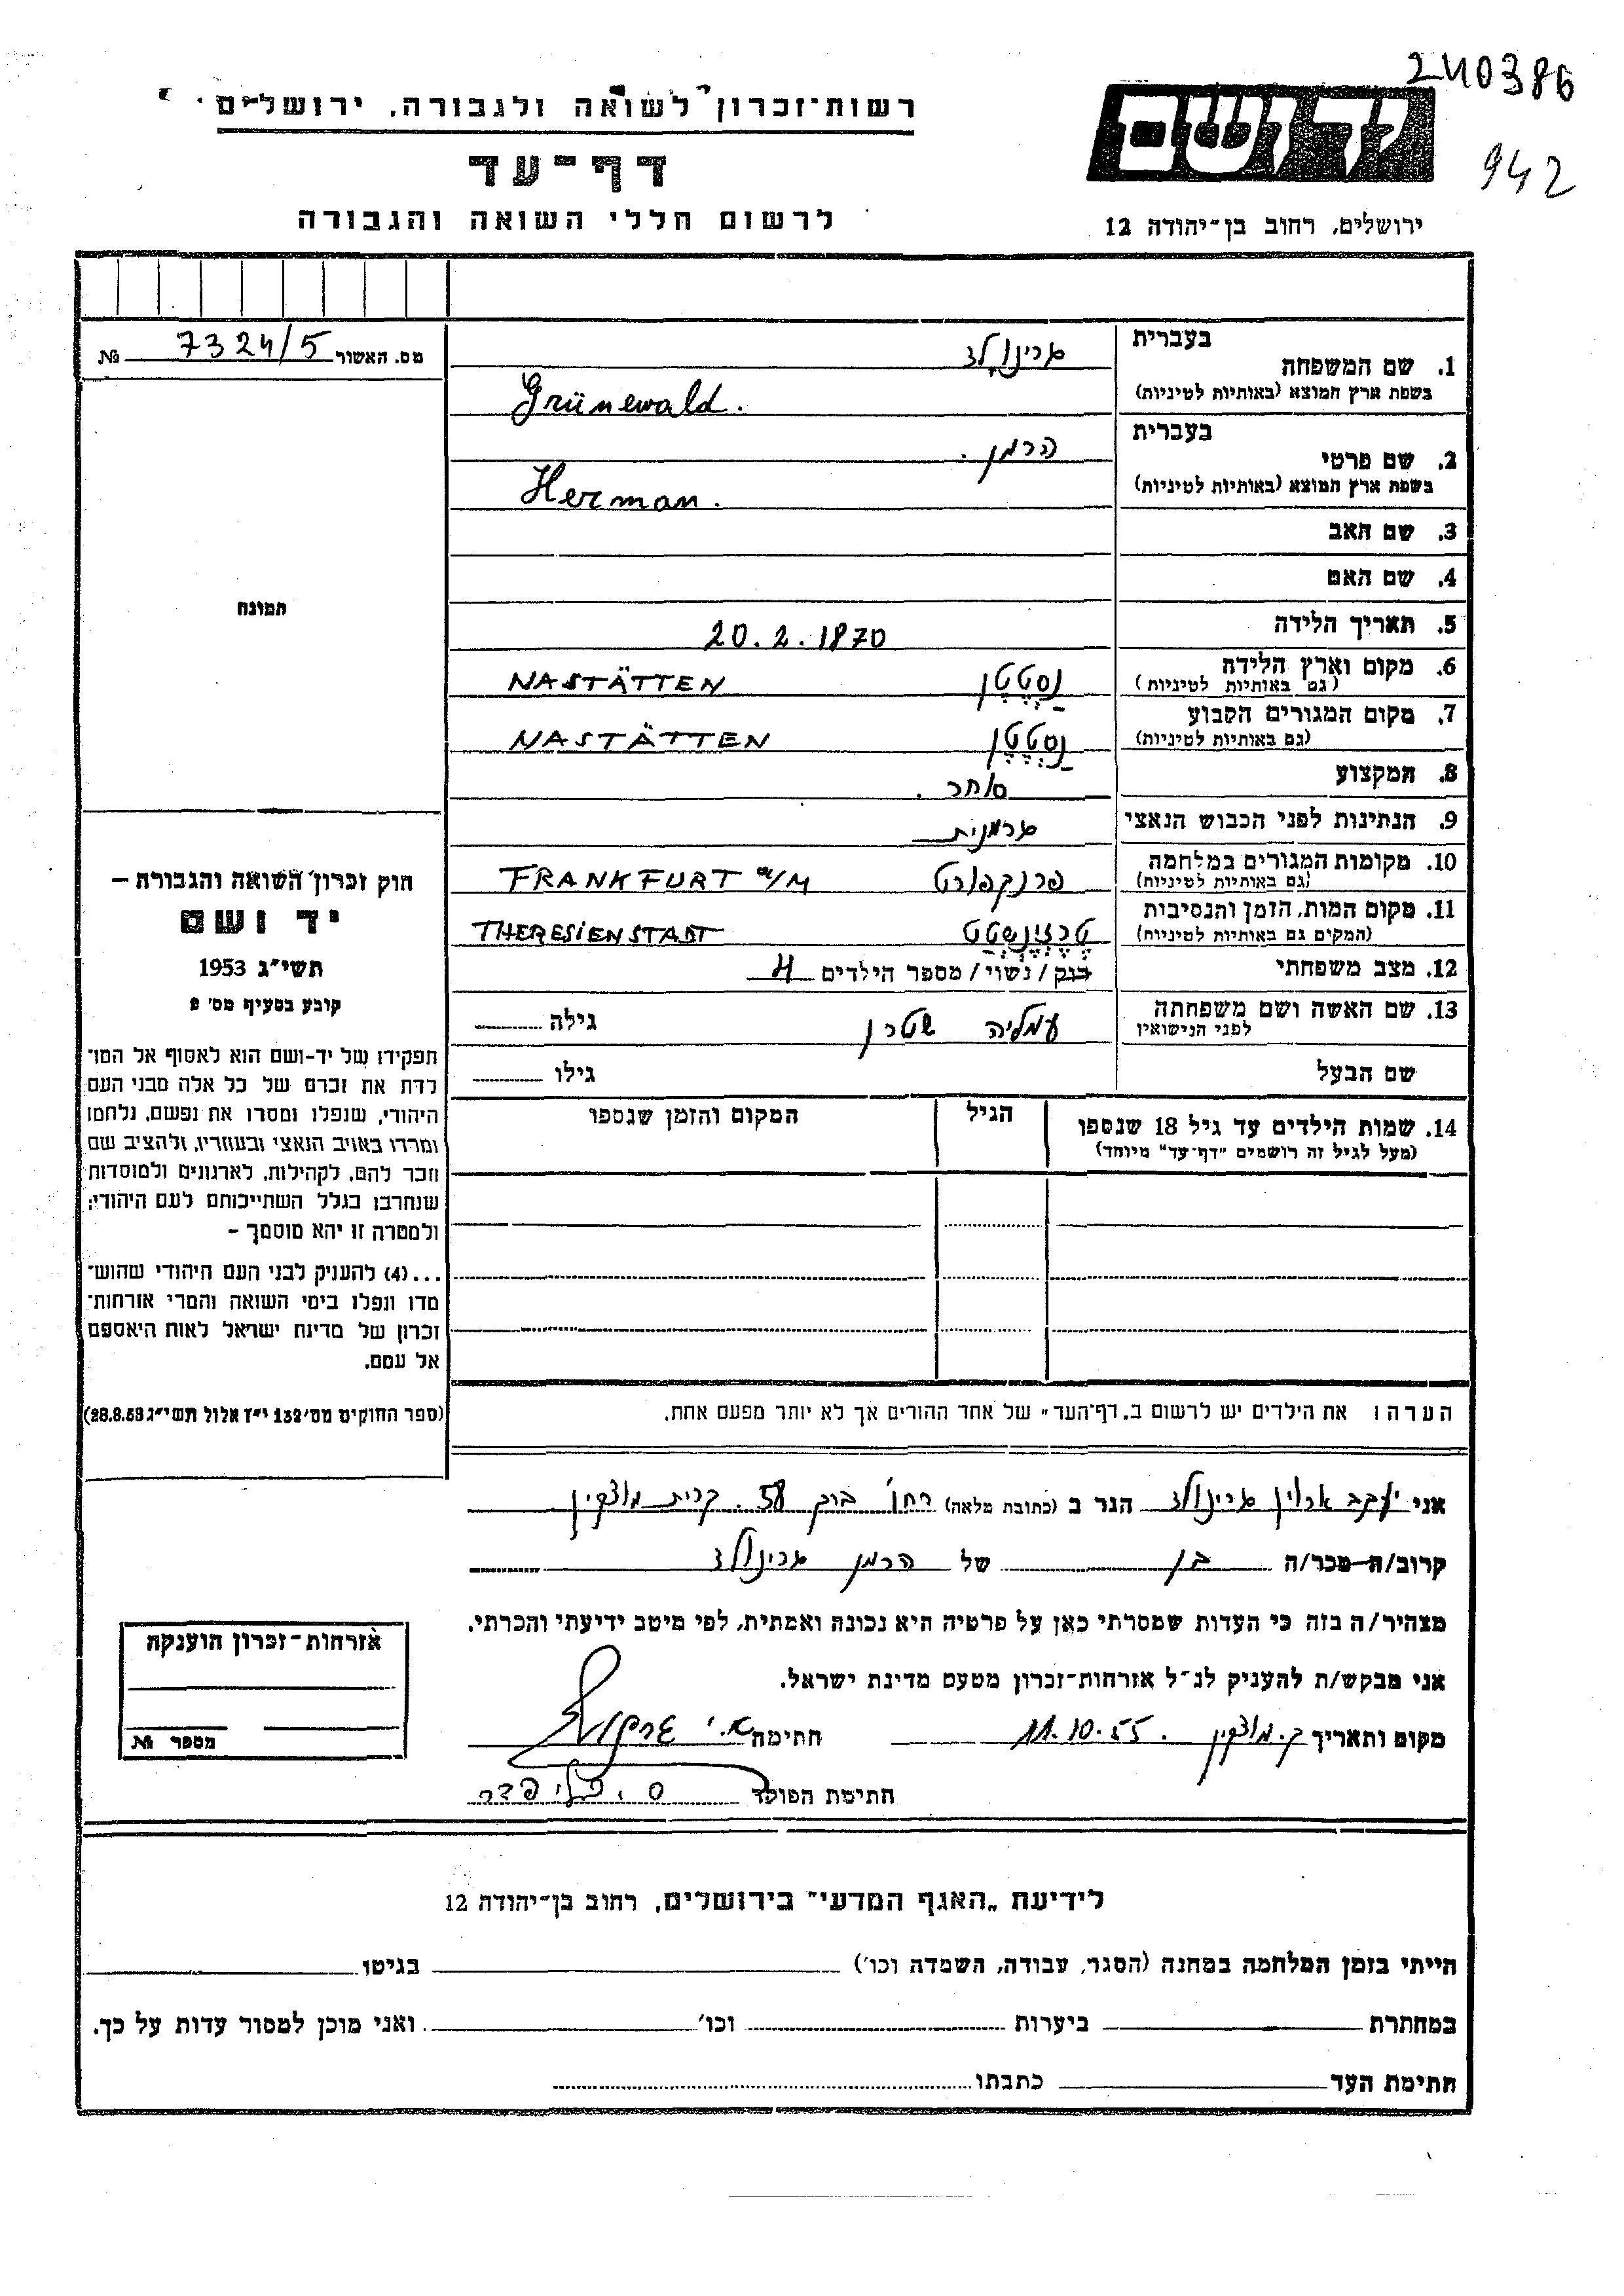 240386
942
רשות־זכרון לשואה ולגבורה, ירושלים
דף־עד
לרשום חללי השואה והגבורה
ידושם
ירושלים, רחוב בן־יהודה 12
מס. האשור 7324/5 №
תמונה
חוק זכרון השואה והגבורה –
יד ושם
תשי״ג 1953
קובע בסעיף מס׳ 2
תפקידו של יד-ושם הוא לאסוף אל המו־
לדת את זכרם של כל אלה מבני העם
היהודי, שנפלו ומסרו את נפשם, נלחמו
ומרדו באויב הנאצי ובעוזריו, ולהציב שם
וזכר להם, לקהילות, לארגונים ולמוסדות
שנחרבו בגלל השתייכותם לעם היהודי;
ולמטרה זו יהא מוסמך –
...(4) להעניק לבני העם היהודי שהוש־
מדו ונפלו בימי השואה והמרי אזרחות־
זכרון של מדינת ישראל לאות היאספם
אל עמם.
(ספר החוקים מס׳ 132 י״ז אלול תשי״ג 28.8.53)
בעברית
1. שם המשפחה גרינולד
בשפת ארץ המוצא (באותיות לטיניות) Grünewald.
בעברית
2. שם פרטי הרמן.
בשפת ארץ המוצא (באותיות לטיניות) Herman.
3. שם האב
4. שם האם
5. תאריך הלידה 20.2.1870
6. מקום וארץ הלידה נַסְטֶטֶן NASTÄTTEN
(גם באותיות לטיניות)
7. מקום המגורים הקבוע נַסְטֶטֶן NASTÄTTEN
(גם באותיות לטיניות)
8. המקצוע סוחר.
9. הנתינות לפני הכבוש הנאצי גרמנית
10. מקומות המגורים במלחמה פרנקפורט FRANKFURT a/M
(גם באותיות לטיניות)
11. מקום המות, הזמן והנסיבות טֶרֶזְיֶנְשְטַט THERESIENSTADT
(המקום גם באותיות לטיניות)
12. מצב משפחתי רוק / נשוי / מספר הילדים 4
13. שם האשה ושם משפחתה עמליה שטרן גילה
לפני הנישואין
שם הבעל גילו
14. שמות הילדים עד גיל 18 שנספו הגיל המקום והזמן שנספו
(מעל לגיל זה רושמים "דף־עד" מיוחד)
הערה: את הילדים יש לרשום ב„דף־העד״ של אחד ההורים אך לא יותר מפעם אחת.
אני יעקב ארוין גרינולד הגר ב (כתובת מלאה) רחו׳ 58. קרית מוצקין
קרוב/ה מכר/ה בן של הרמן גרינולד
מצהיר/ה בזה כי העדות שמסרתי כאן על פרטיה היא נכונה ואמתית, לפי מיטב ידיעתי והכרתי.
אני מבקש/ת להעניק לנ״ל אזרחות־זכרון מטעם מדינת ישראל.
מקום ותאריך ק. מוצקין. 11.10.55 חתימה
חתימת הפוקד
אזרחות־זכרון הוענקה
מספר №
לידיעת „האגף המדעי״ בירושלים, רחוב בן־יהודה 12
הייתי בזמן המלחמה במחנה (הסגר, עבודה, השמדה וכו׳) בגיטו
במחתרת ביערות וכו׳ ואני מוכן למסור עדות על כך.
חתימת העד כתבתו